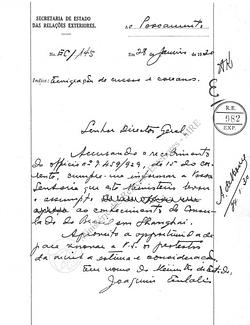 SECRETARIA DE ESTADO
DAS RELAÇÕES EXTERIORES.
Povoamento
No. EC/145
Em 28 de Janeiro de 1930
Emigração de russos e coreanos.
R.E.
982
EXP.
Senhor Director Geral,
Accusando o recebimento
do officio nº 7.459/929, de 15 do cor
rente, cumpre-me informar a Vossa
Senhoria que este Ministerio levou
o assumpto
ao conhecimento do Consu-
lado do Brasil em Shanghai.
Aproveito a opportunidade
para renovar a V.S. os protestos
da minha estima e consideração.
Em nome do Ministro de Estado,
Joaquim Eulalio